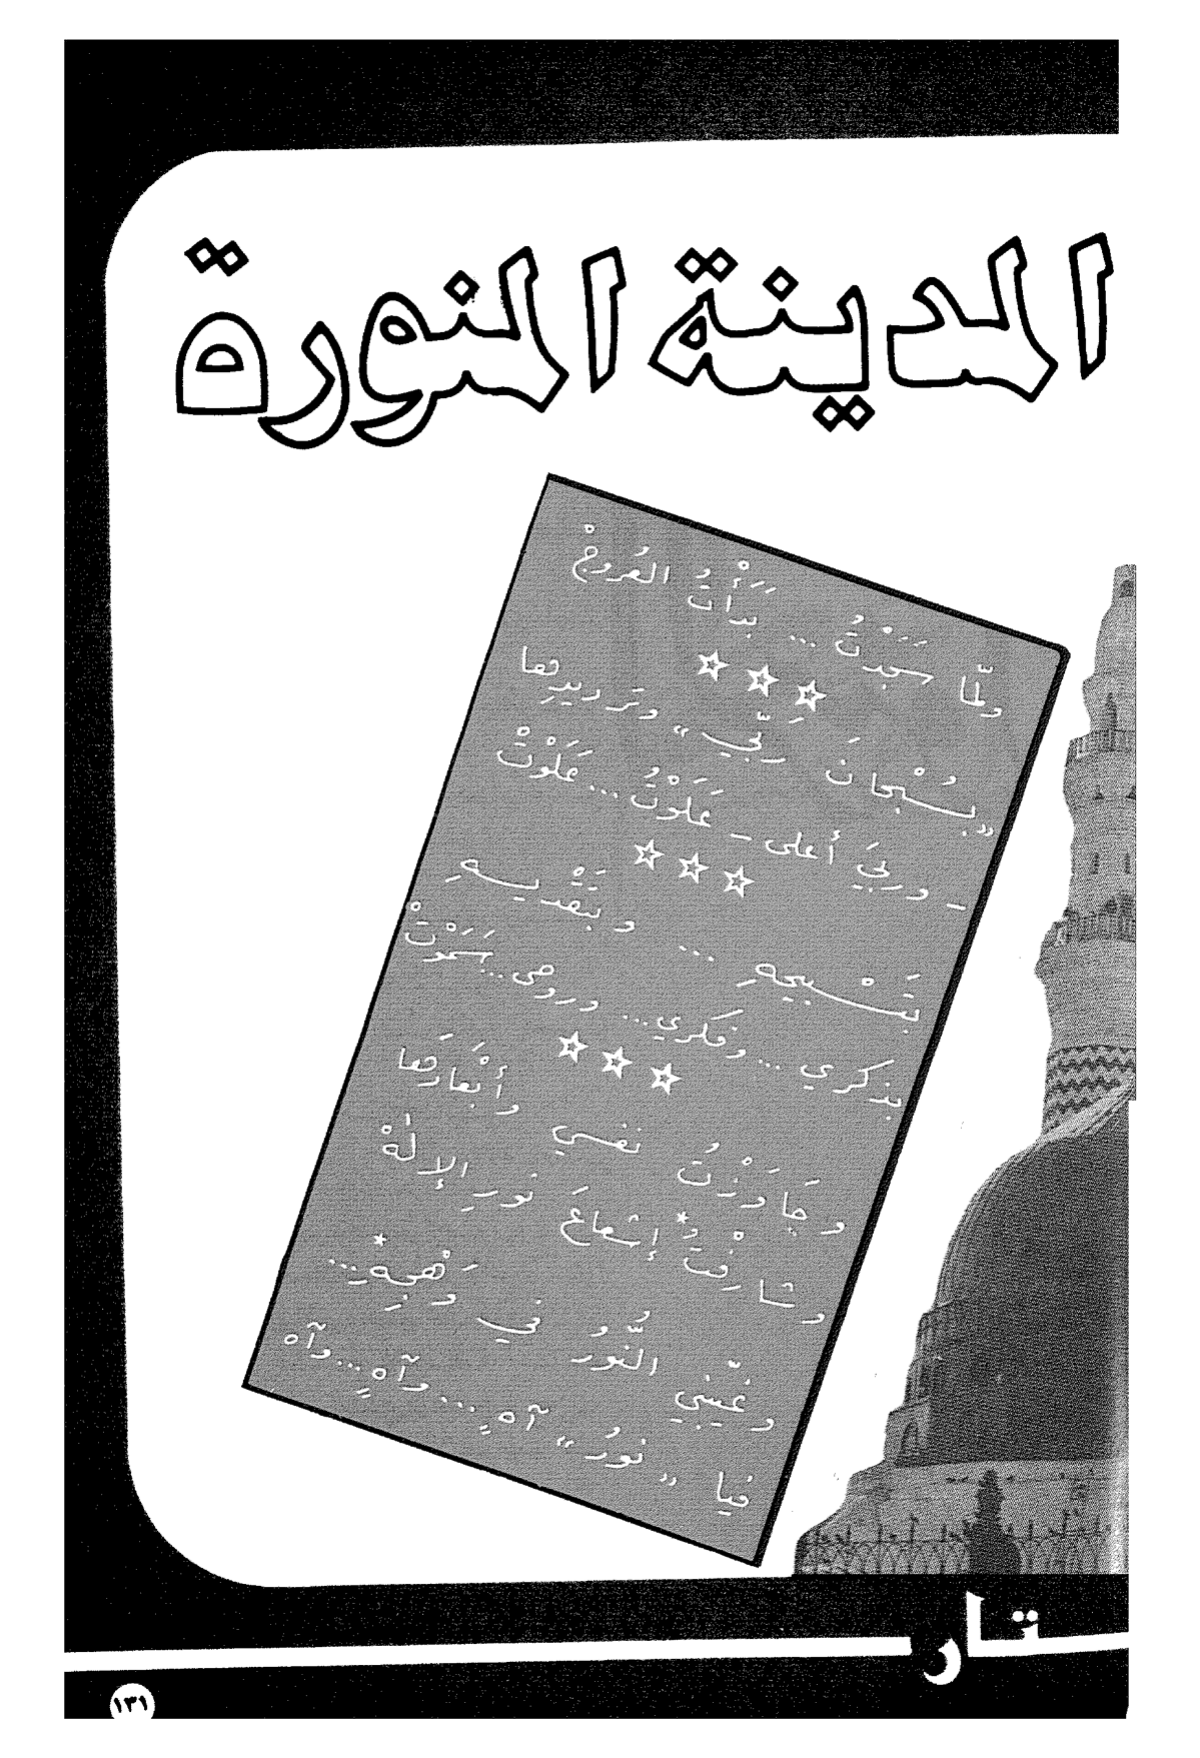 المدينة المنورة
ولمّا سَجَدْتُ ... بَدَأْتُ العُروجْ
«بسُبْحانَ رَبّي» وتَرديدِها
- وربيَ أعلى - عَلَوْتُ ... عَلَوْتْ
بتَسْبيحِهِ ... وبتَقْديسِهِ
بذكري ... وفكري ... وروحي ... سَمَوْتْ
وجَاوَزْتُ نفسي وأبْعادَها
وشارفْتُ إشعاعَ نورِ الإلٰهْ
وغيّبني النُّورُ في وَهْجِهِ ...
فيا «نورُ» آهٍ ... وآهٍ ... وآه
ـتـار
١٣١